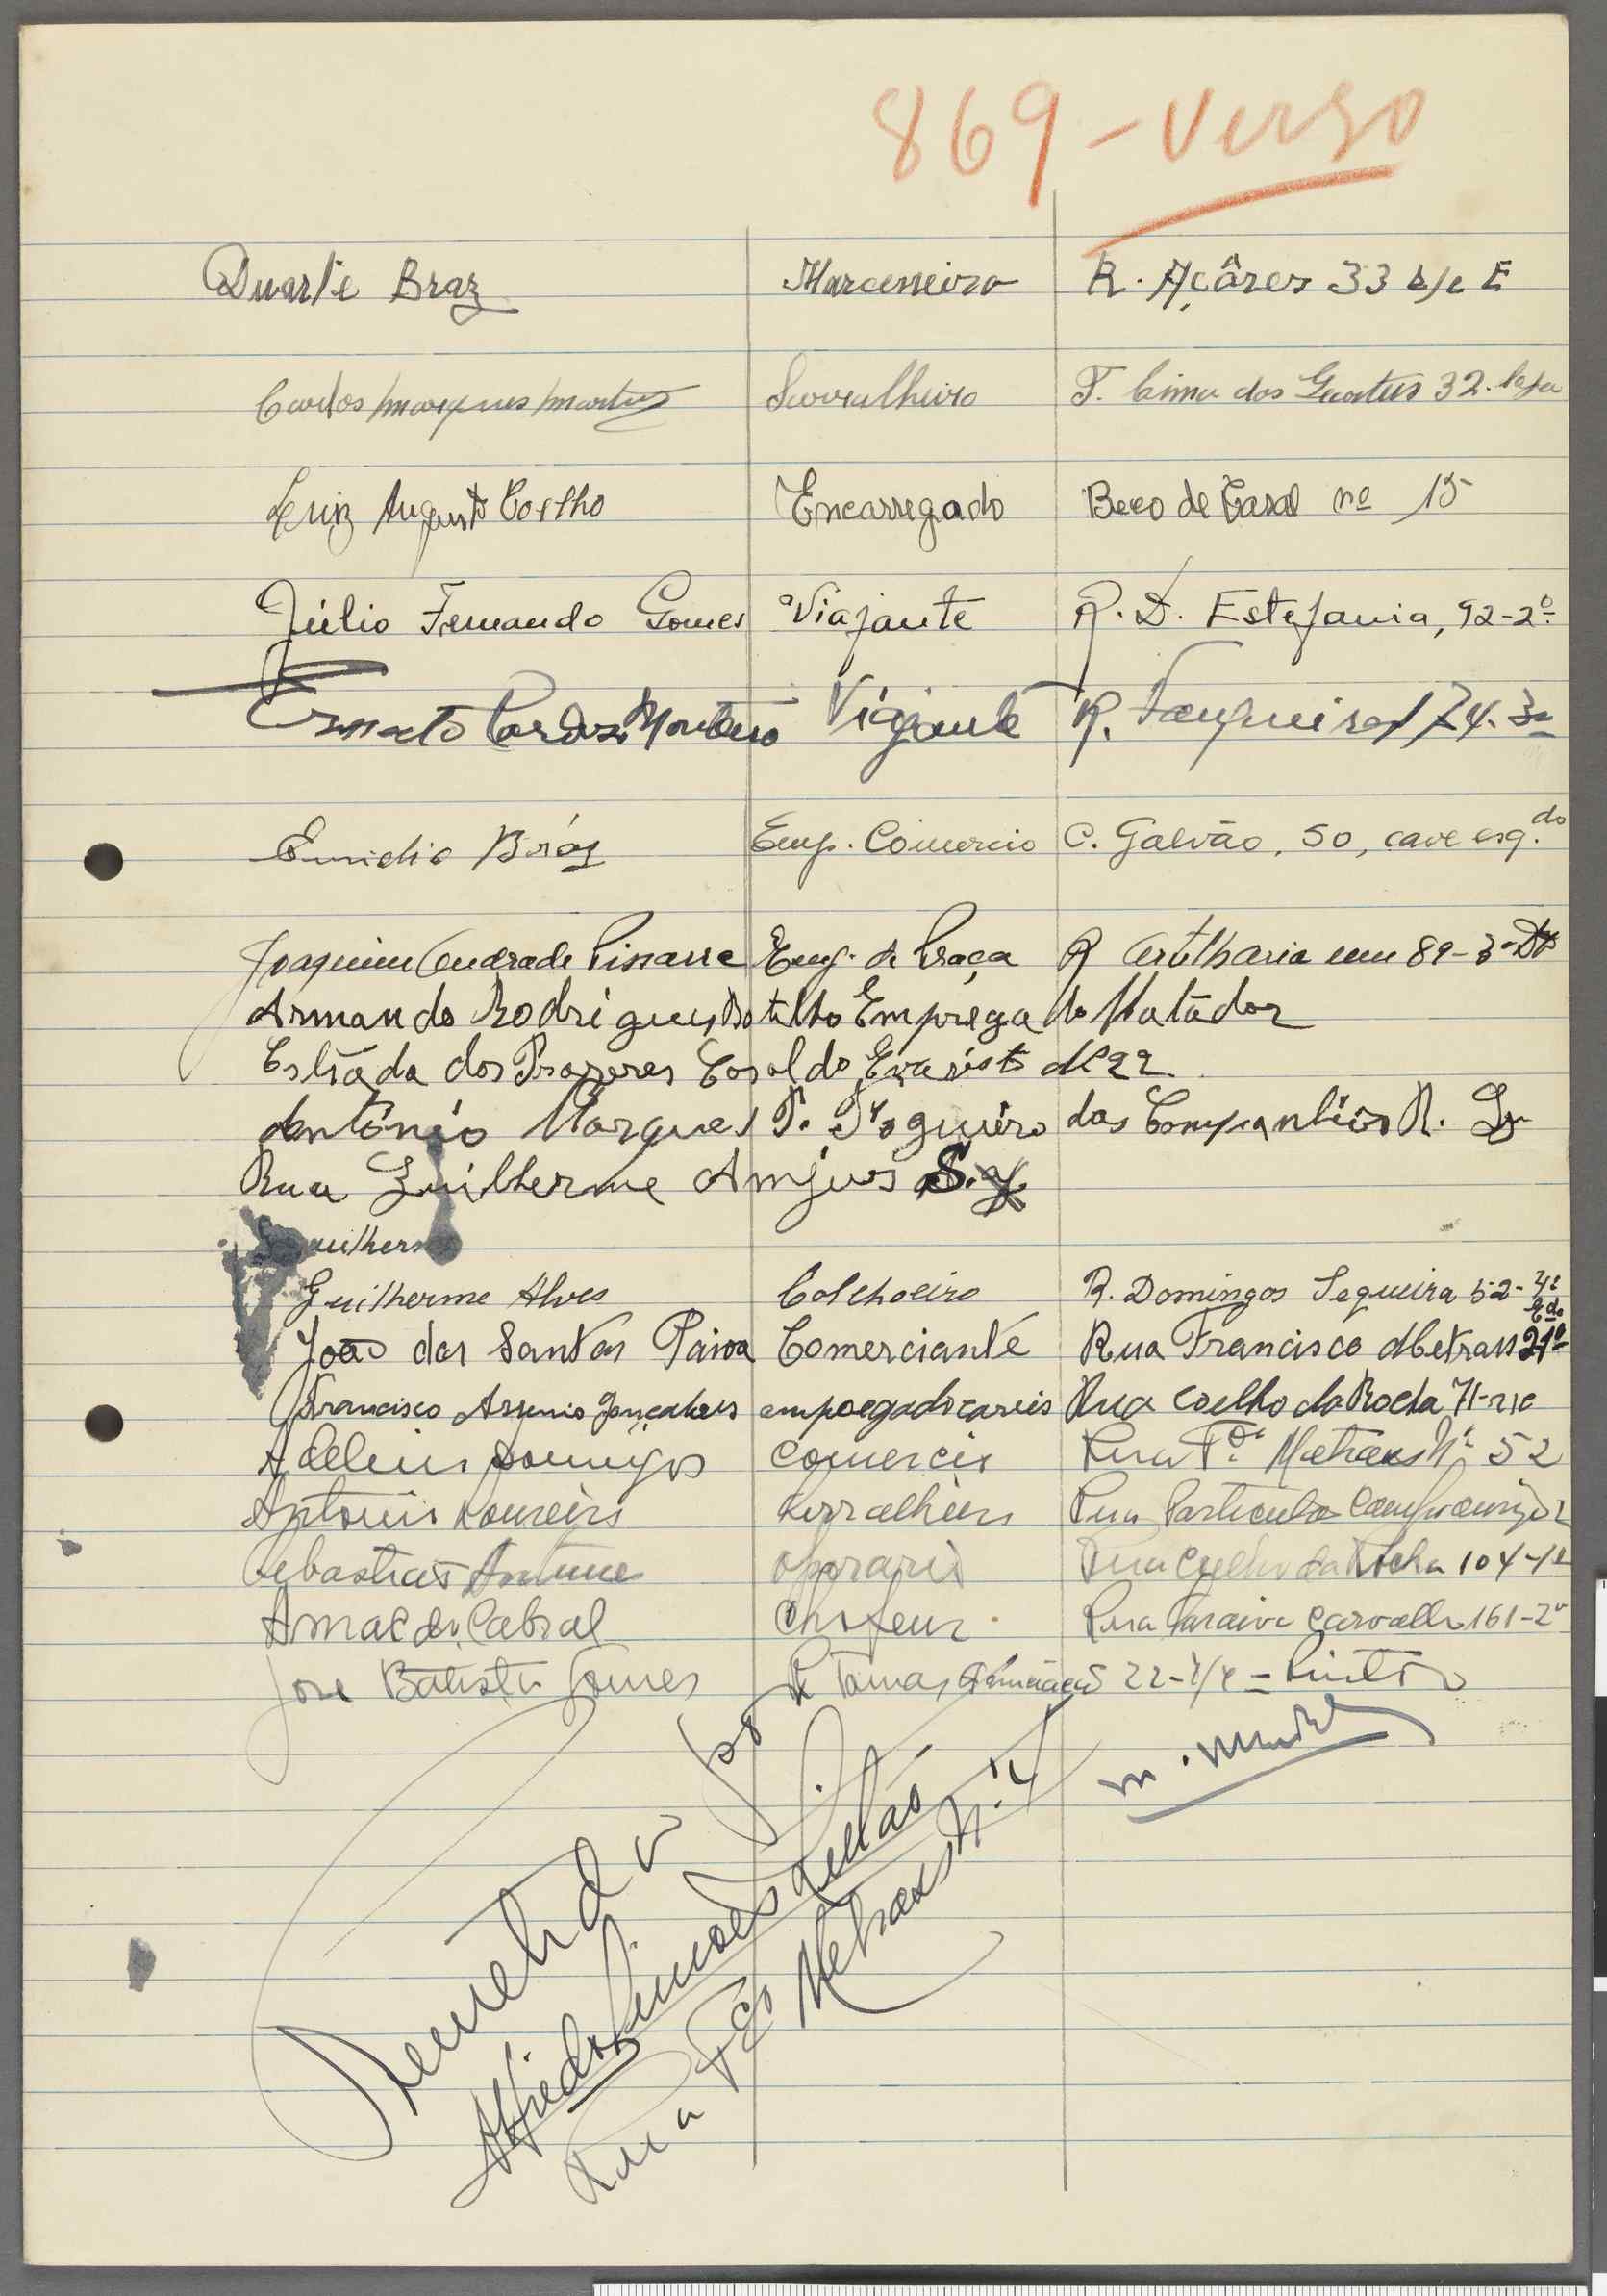 869 - Verso
Duarte Braz Marceneiro R. Açôres 33 r/c E
Carlos Marques Martins Serralheiro T. Cima dos Quarteis 32. loja
Luiz Augusto Coelho Encarregado Beco de Casal nº 15
Júlio Fernando Gomes Viajante R. D. Estefania, 92-2º
Ernesto Cardoso Monteiro Viajante R. Fanqueiros 174. 3º
Emidio Bráz Emp. Comercio C. Galvão, 50, cave esq.do
Joaquim Andrade Pissarra Emp. de Praça R Artilharia um 89-3º Dto
Armando Rodrigues Botelho Empregado Matador
Estráda dos Prazeres Casal do Evaristo Nº 22
António Marques T. Fogueiro das Companhias R.
Rua Guilherme Anjos S.
Guilherme
Guilherme Alves Colchoeiro R. Domingos Sequeira 52-4º
João dos Santos Paiva Comerciante Rua Francisco Metrass 21º
Francisco Arsenio Gonçalves empregado Rua Coelho da Rocha 71-r/c
Adelino Domingos Comercio Rua Fco. Metrass Nº 52
Antonio Loureiro Serralheiro Rua Particular
Sebastião Antunes Operario Rua Coelho da Rocha 104-1º
Amaldo Cabral Chofeur Rua Saraiva Carvalho 161-2º
Jose Batista Gomes R Tomas Anunciação 22-r/c - Pintor
M.
Remetida por
Alfredo Simões Leitão
Rua Fco Metrass N.